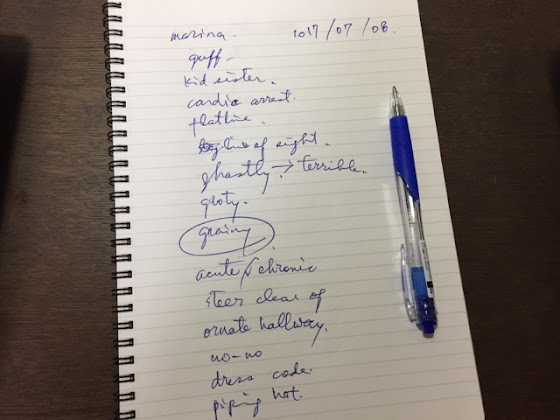 marina. 2017/07/08.
guff.
kid sister.
cardiac arrest.
flatline.
line of sight.
ghastly. → terrible.
groty.
grainy.
acute / chronic
steer clear of
ornate hallway.
no-no
dress code.
piping hot.